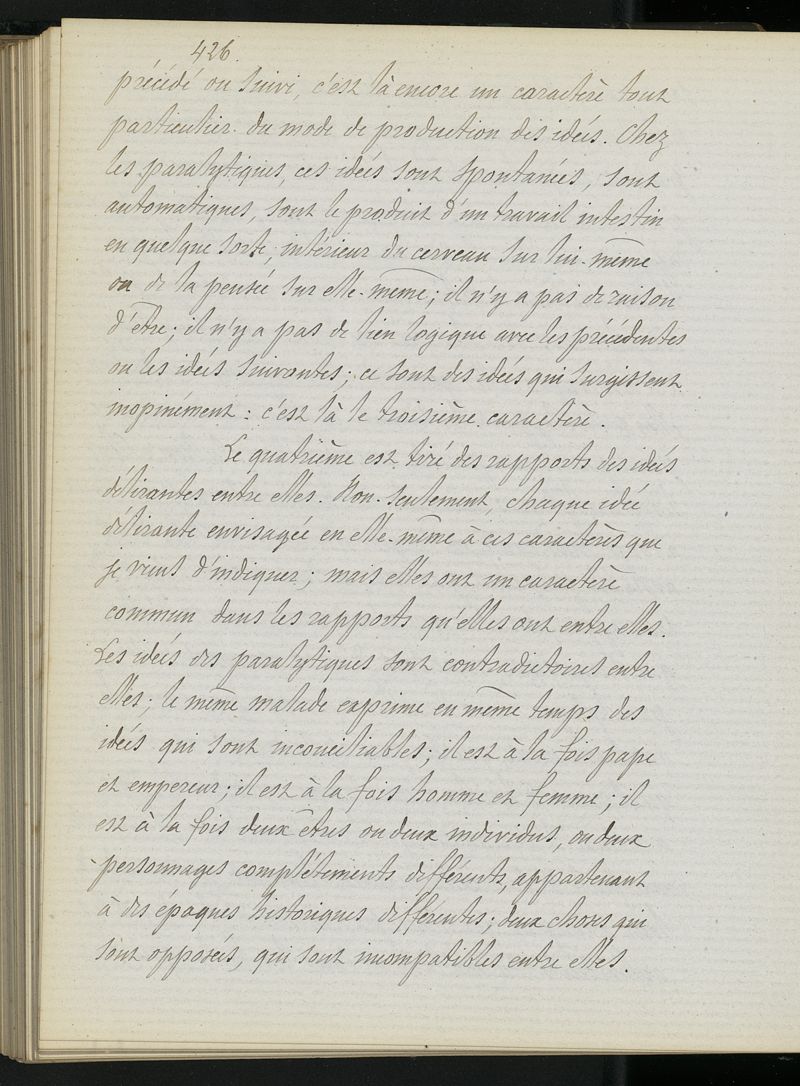 426
précédé ou suivi, c'est là encore un caractère tout
particulier du mode de production des idées. Chez
les paralytiques, ces idées sont spontanées, sont
automatiques, sont le produit d'un travail intestin
en quelque sorte, intérieur du cerveau sur lui-même
ou de la pensée sur elle-même; il n'y a pas de raison
d'être; il n'y a pas de lien logique avec les précédentes
ou les idées suivantes; ce sont des idées qui surgissent
inopinément: c'est là le troisième caractère.
Le quatrième est tiré des rapports des idées
délirantes entre elles. Non-seulement, chaque idée
délirante envisagée en elle-même à ces caractères que
je viens d'indiquer; mais elles ont un caractère
commun dans les rapports qu'elles ont entre elles.
Les idées des paralytiques sont contradictoires entre
elles; le même malade exprime en même temps des
idées qui sont inconciliables; il est à la fois pape
et empereur; il est à la fois homme et femme; il
est à la fois deux êtres ou deux individus, ou deux
personnages complétements différents, appartenant
à des époques historiques différentes; deux choses qui
sont opposées, qui sont incompatibles entre elles.